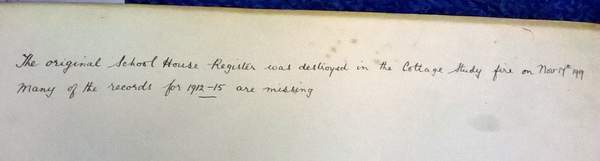 The original School House Register was destroyed in the Cottage Study fire on Nov 19th 1919
Many of the records for 1912-15 are missing